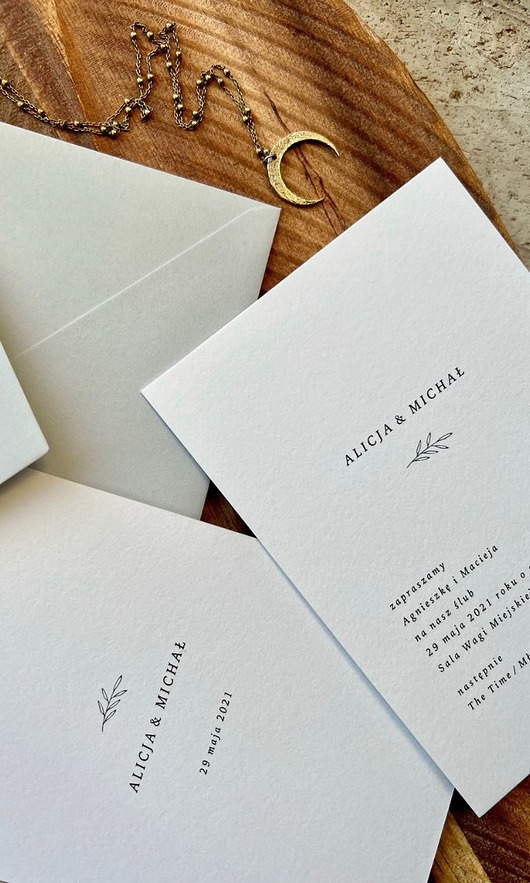 ALICJA & MICHAŁ
zapraszamy
Agnieszkę i Macieja
na nasz ślub
29 maja 2021 roku o
Sala Wagi
następnie
The Time /
ALICJA & MICHAŁ
29 maja 2021